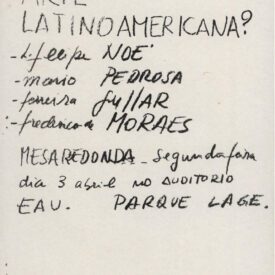 ARTE
LATINOAMERICANA?
- L. felipe NOÉ
- mario PEDROSA
- ferreira gullAR
- frederico de MORAES
MESA REDONDA - segunda feira
dia 3 abril NO AUDITORIO
EAV. PARQUE LAGE.